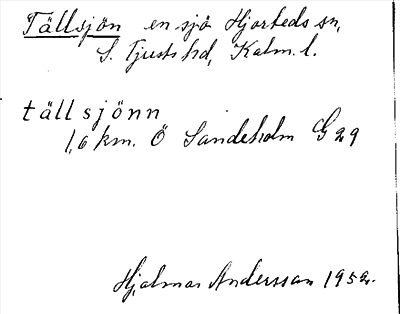 Tällsjön en sjö Hjorteds sn,
S. Tjusts hd, Kalm. l.
tällsjönn
1,6 km. Ö Sandeholm G 29
Hjalmar Andersson 1952.